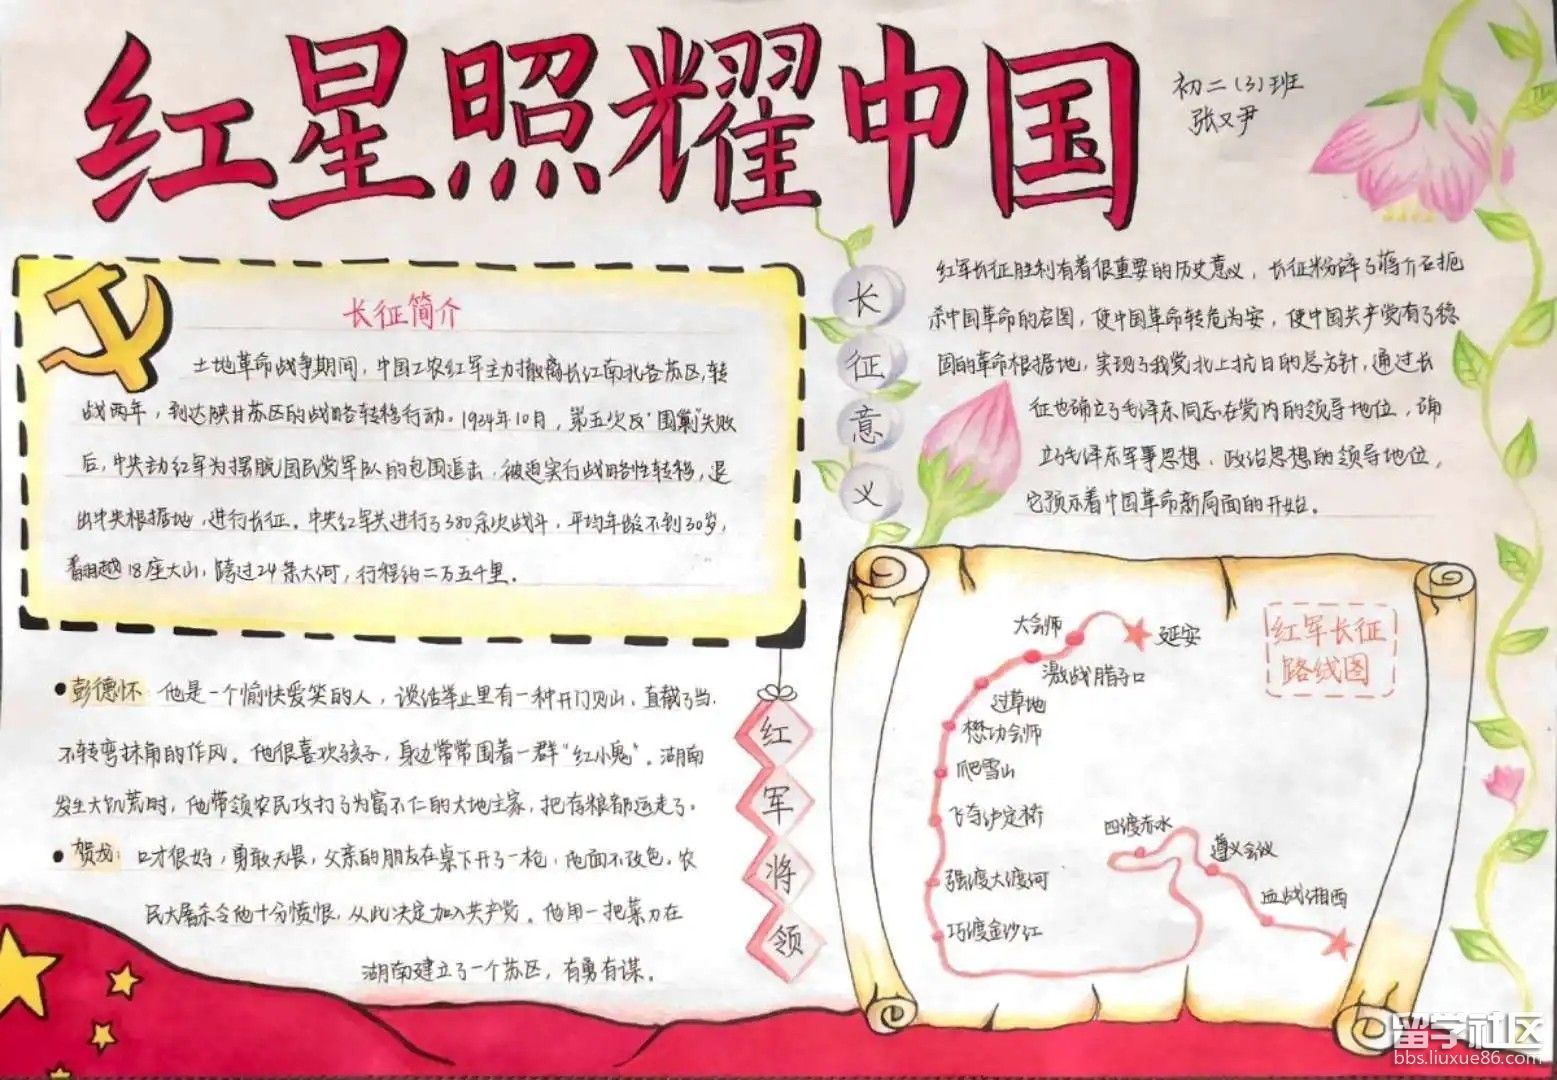 红星照耀中国
初二(3)班
张又尹
长征简介
土地革命战争期间，中国工农红军主力撤离长江南北各苏区，转
战两年，到达陕甘苏区的战略转移行动。1934年10月，第五次反“围剿”失败
后，中央主力红军为摆脱国民党军队的包围追击，被迫实行战略性转移，退
出中央根据地，进行长征。中央红军共进行了380余次战斗，平均年龄不到30岁，
翻越18座大山，跨过24条大河，行程约二万五千里。
长征意义
红军长征胜利有着很重要的历史意义，长征粉碎了蒋介石扼
杀中国革命的启图，使中国革命转危为安，使中国共产党有了稳
固的革命根据地，实现了我党北上抗日的总方针，通过长
征也确立了毛泽东同志在党内的领导地位，确
立了毛泽东军事思想、政治思想的领导地位，
它预示着中国革命新局面的开始。
●彭德怀：他是一个愉快爱笑的人，谈话举止里有一种开门见山、直截了当、
不转弯抹角的作风。他很喜欢孩子，身边常常围着一群“红小鬼”。湖南
发生大饥荒时，他带领农民攻打了为富不仁的大地主家，把存粮都运走了。
●贺龙：口才很好，勇敢无畏，父亲的朋友在桌下开了一枪，他面不改色。农
民大屠杀令他十分愤恨，从此决定加入共产党。他用一把菜刀在
湖南建立了一个苏区，有勇有谋。
红军将领
红军长征
路线图
大会师
延安
激战腊子口
过草地
懋功会师
爬雪山
飞夺泸定桥
强渡大渡河
巧渡金沙江
四渡赤水
遵义会议
血战湘西
留学社区
bbs.liuxue86.com